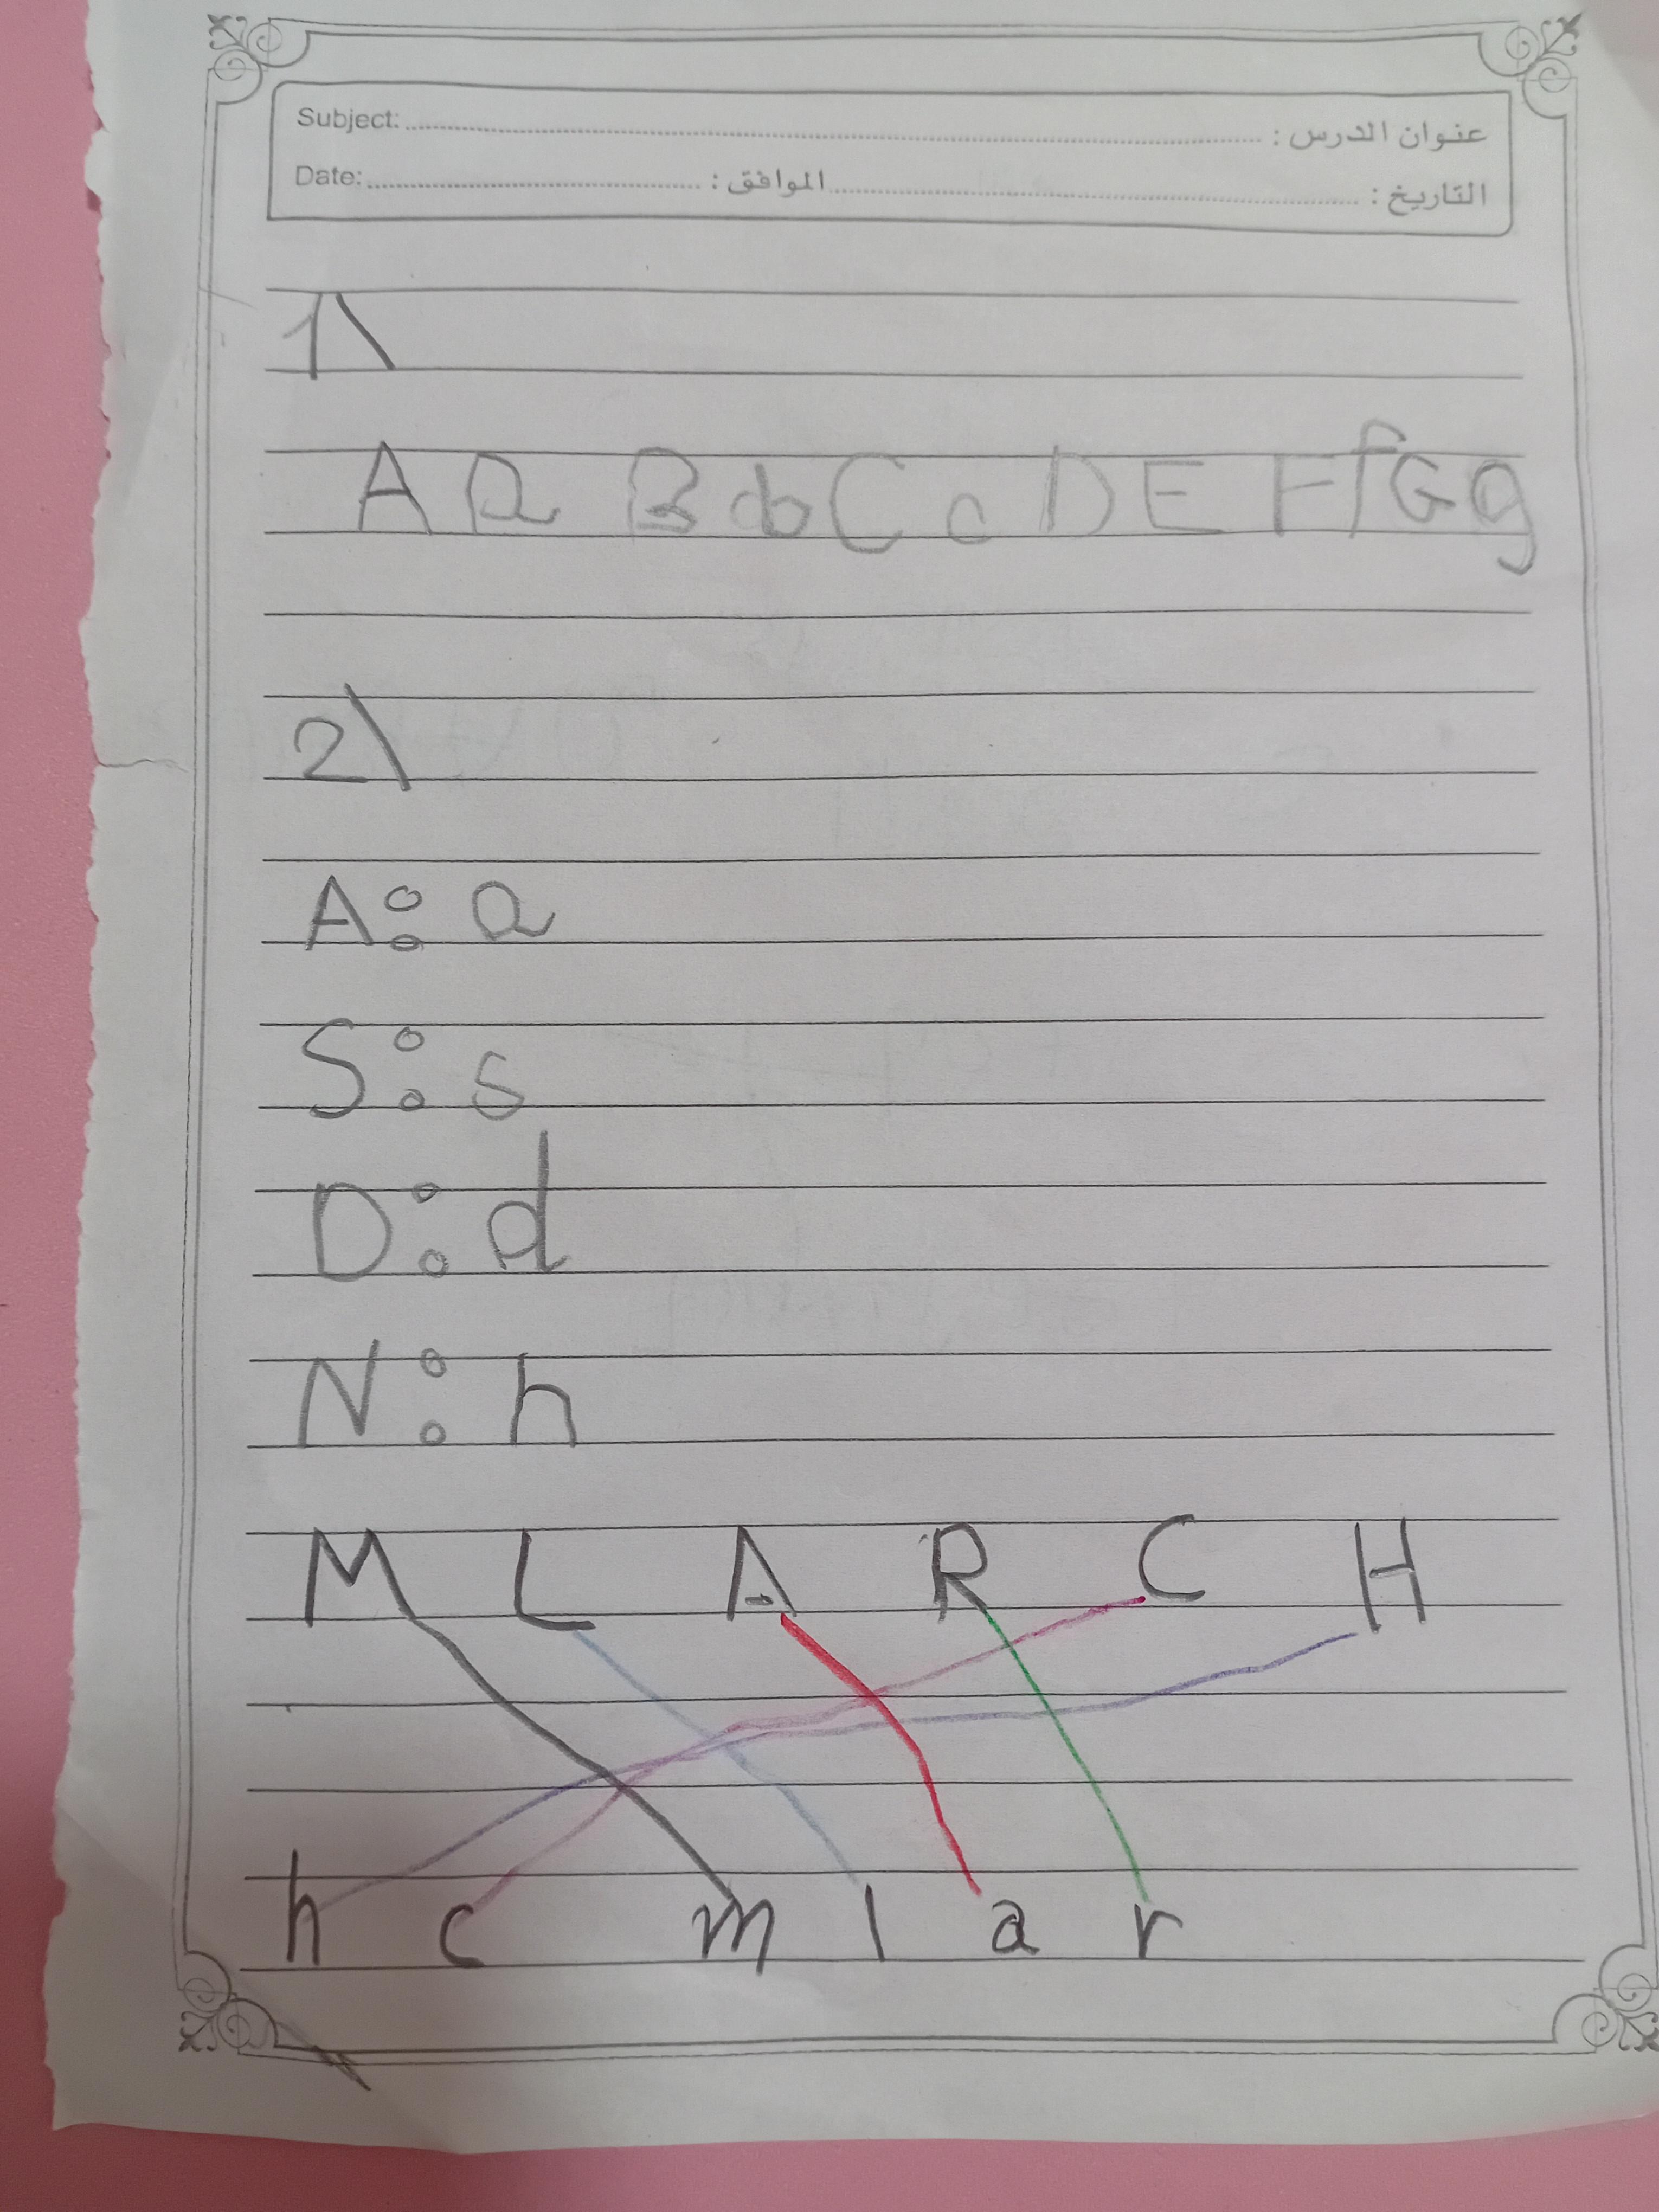 Subject: عنوان الدرس :
Date: الموافق : التاريخ :
1\
A a B b C c D E F f G g
2\
A: a
S: s
D: d
N: h
M L A R C H
h c m l a r